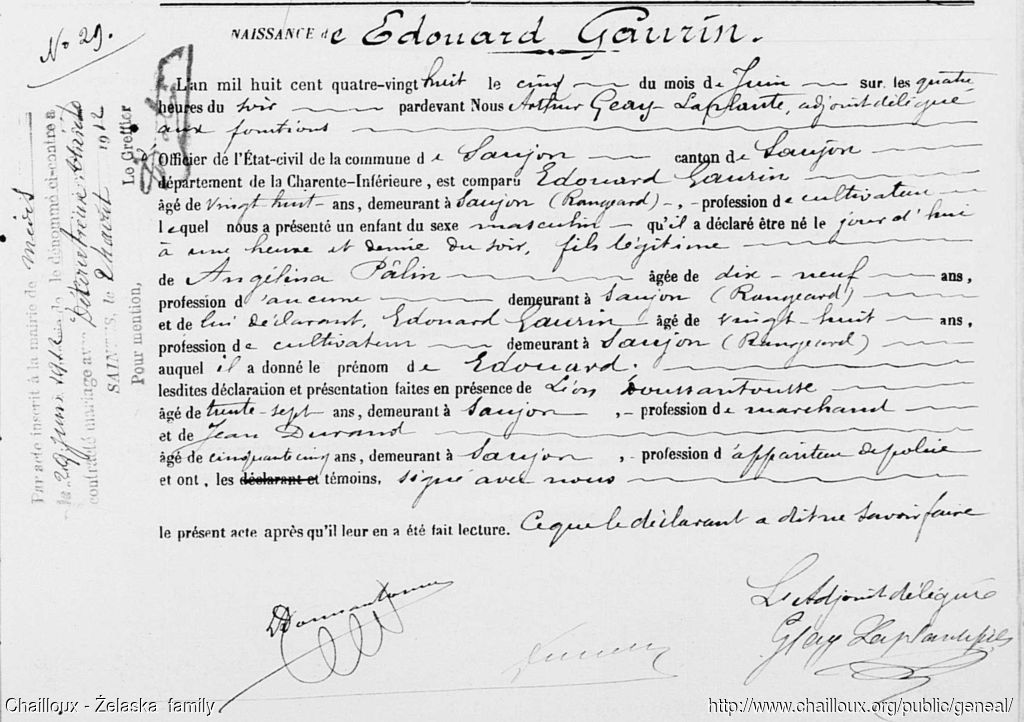 No 29.
NAISSANCE de Edouard Gaurin.
L'an mil huit cent quatre-vingt huit le cinq du mois de Juin sur les quatre
heures du soir pardevant Nous Arthur Geay-Laplante, adjoint délégué
aux fontions
Officier de l'État-civil de la commune de Saujon canton de Saujon
département de la Charente-Inférieure, est comparu Edouard Gaurin
âgé de vingt huit ans, demeurant à Saujon (Rangeard), profession de cultivateur
lequel nous a présenté un enfant du sexe masculin qu'il a déclaré être né le jour d'hui
à une heure et demie du soir, fils légitime
de Angélina Pâlin âgée de dix-neuf ans,
profession d'aucune demeurant à Saujon (Rangeard)
et de lui déclarant, Edouard Gaurin âgé de vingt-huit ans,
profession de cultivateur demeurant à Saujon (Rangeard)
auquel il a donné le prénom de Edouard.
lesdites déclaration et présentation faites en présence de Léon
âgé de trente-sept ans, demeurant à Saujon, profession de marchand
et de Jean Durand
âgé de cinquante cinq ans, demeurant à Saujon, profession d'appariteur de police
et ont, les déclarant et témoins, signé avec nous
le présent acte après qu'il leur en a été fait lecture. Ce que le déclarant a dit ne savoir faire
Le Adjoint délégué
Geay Laplante
Par acte inscrit à la mairie de
le 29 juin 1912 le dénommé ci-contre a
contracté mariage avec
SAINTES, le 1912
Pour mention,
Le Greffier
Chailloux - Żelaska family
http://www.chailloux.org/public/geneal/